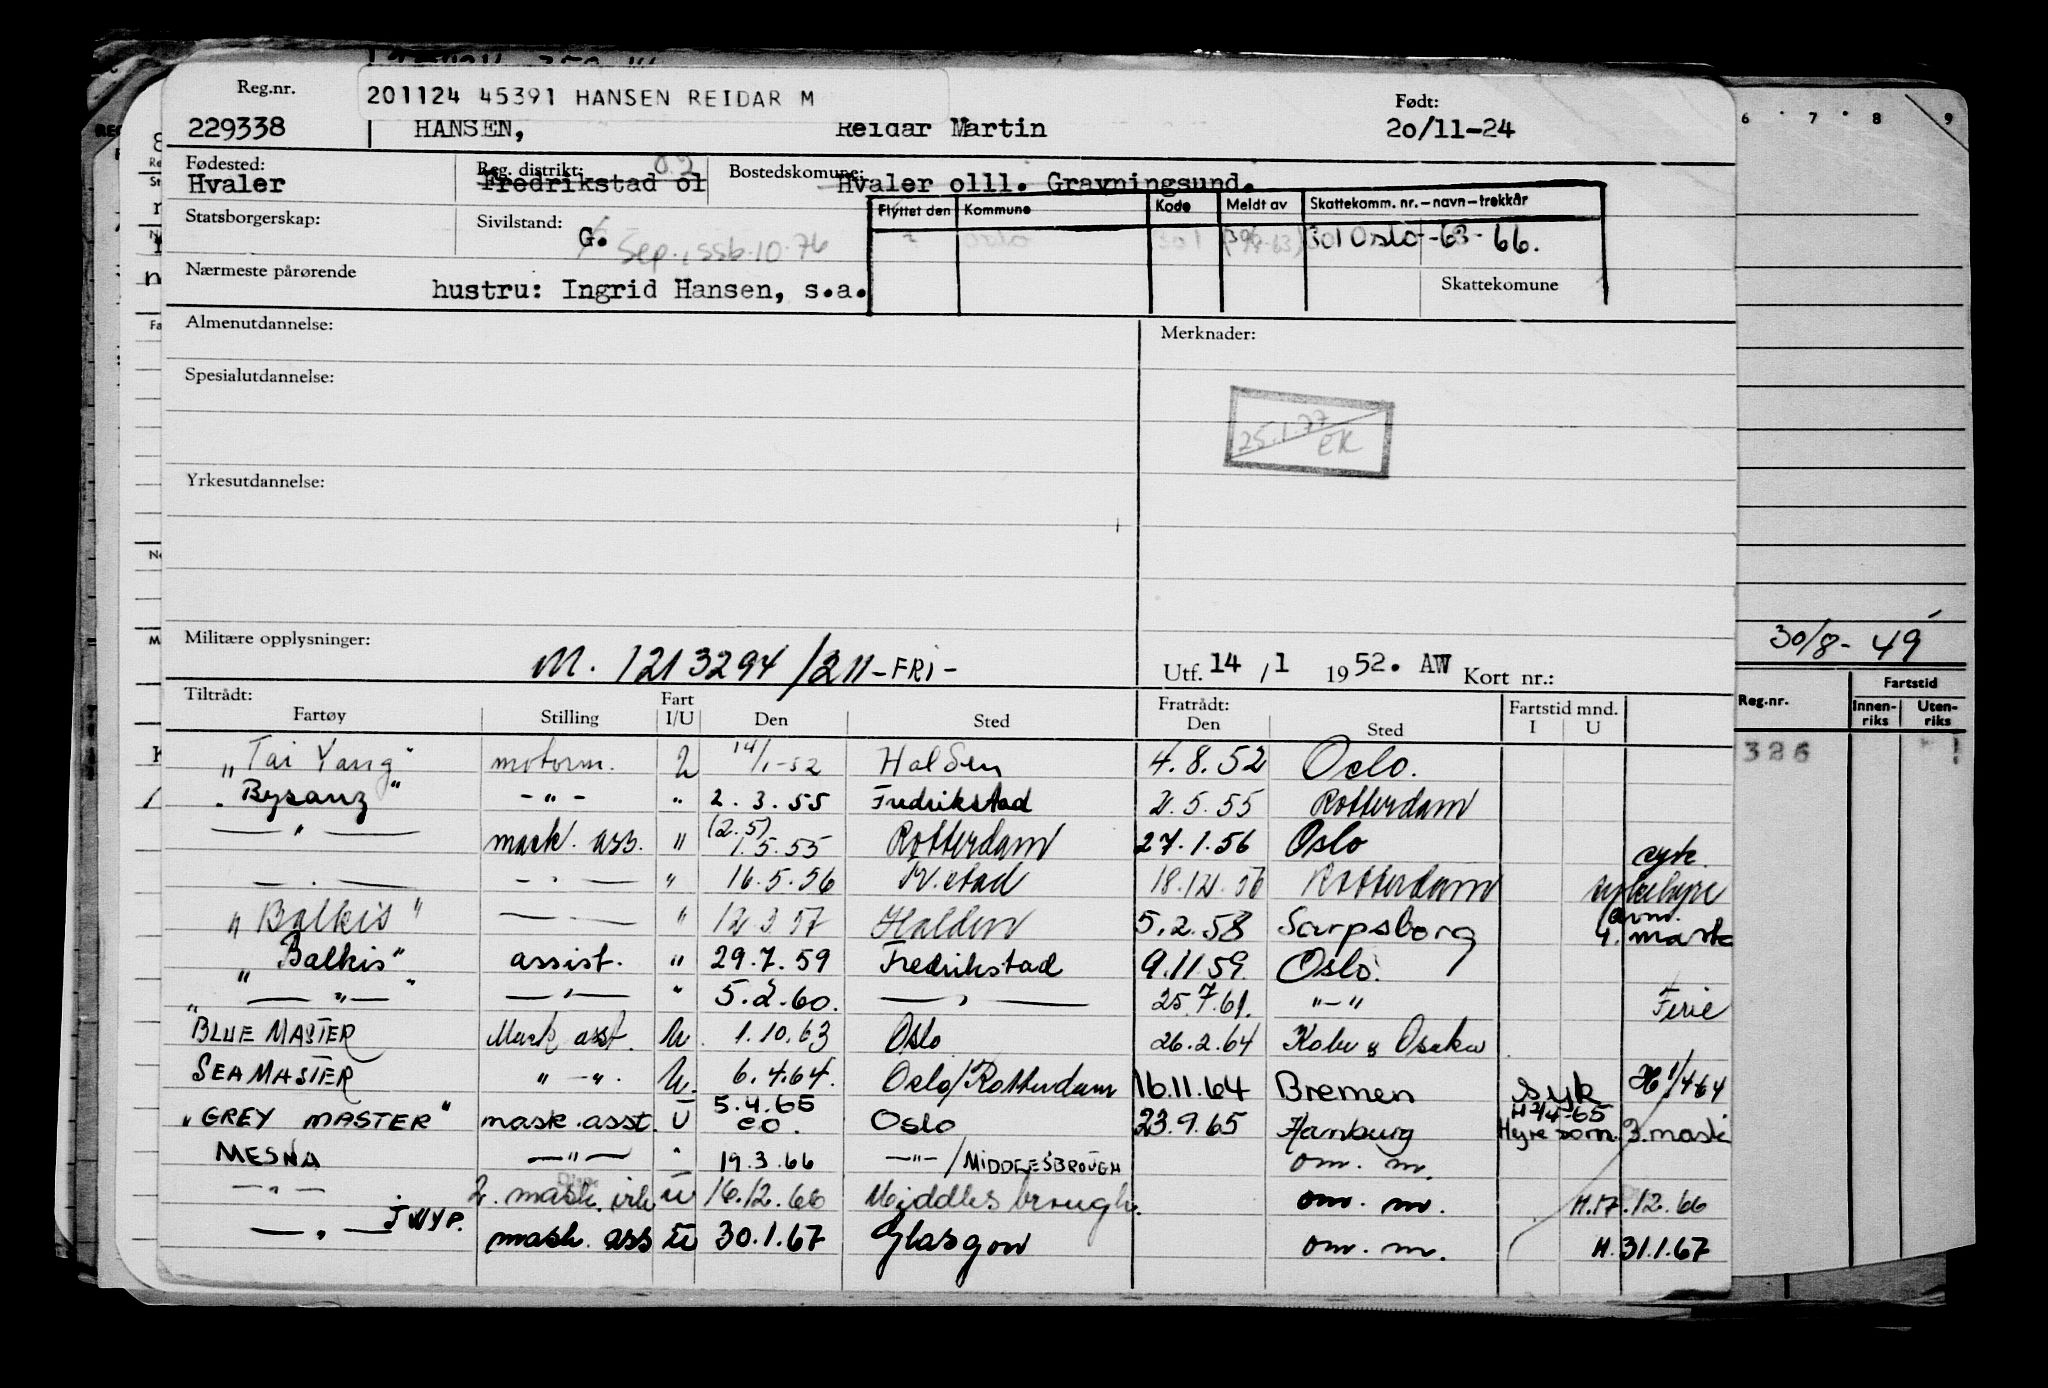 Reg.nr.
201124 45391 HANSEN REIDAR M
Født:
229338 HANSEN, Reidar Martin 20/11-24
Fødested: Reg. distrikt: 02 Bostedskommune:
Hvaler Fredrikstad 01 Hvaler olll. Gravningsund.
Statsborgerskap: Sivilstand: Flyttet den Kommune Kode Meldt av Skattekomm. nr.-navn-trekkår
G. Sep., ssb.10.76 Oslo 301 301 Oslo -63- 66.
Nærmeste pårørende Skattekomune
hustru: Ingrid Hansen, s.a.
Almenutdannelse: Merknader:
Spesialutdannelse:
25.1.77 EK
Yrkesutdannelse:
Militære opplysninger: M. 1213294/211-FRI-
Utf. 14/1 1952. AW Kort nr.:
30/8-49
Tiltrådt: Fart Fratrådt: Fartstid mnd.
Fartøy Stilling I/U Den Sted Den Sted I U
Reg.nr. Fartstid
Innen-riks Uten-riks
326
"Tai Yang" motorm. U 14/1-52 Halden 4.8.52 Oslo.
"Bysanz" -"- " 2.3.55 Fredrikstad 2.5.55 Rotterdam
—"— mask. ass. " (2.5) 1.5.55 Rotterdam 27.1.56 Oslo
—"— —"— " 16.5.56 Fr.stad 18.12.56 Rotterdam syk. sykehjre
"Balkis" —"— " 12.3.57 Halden 5.2.58 Sarpsborg avm. 4. mask
"Balkis" assist. " 29.7.59 Fredrikstad 9.11.59. Oslo.
"—"—" —"— " 5.2.60. —"— 25.7.61. "—" Ferie
BLUE MASTER Mask asst. U. 1.10.63 Oslo 26.2.64 Kobe " Osaka
SEA MASTER "—". U. 6.4.64. Oslo/Rotterdam 16.11.64 Bremen syk H 1/4-64
"GREY MASTER" mask.asst. U 5.4.65 co. Oslo 23.9.65 Hamburg H 2/4-65 Hyre som. 3. mask
MESNA —"— " 19.3.66 —"—/MIDDLESBROUGH om. m.
—"— 2. mask. U 16.12.66 Middlesbrough. om. m. H.17.12.66
—"— mask. ass U 30.1.67 Glasgow om. m. H. 31.1.67